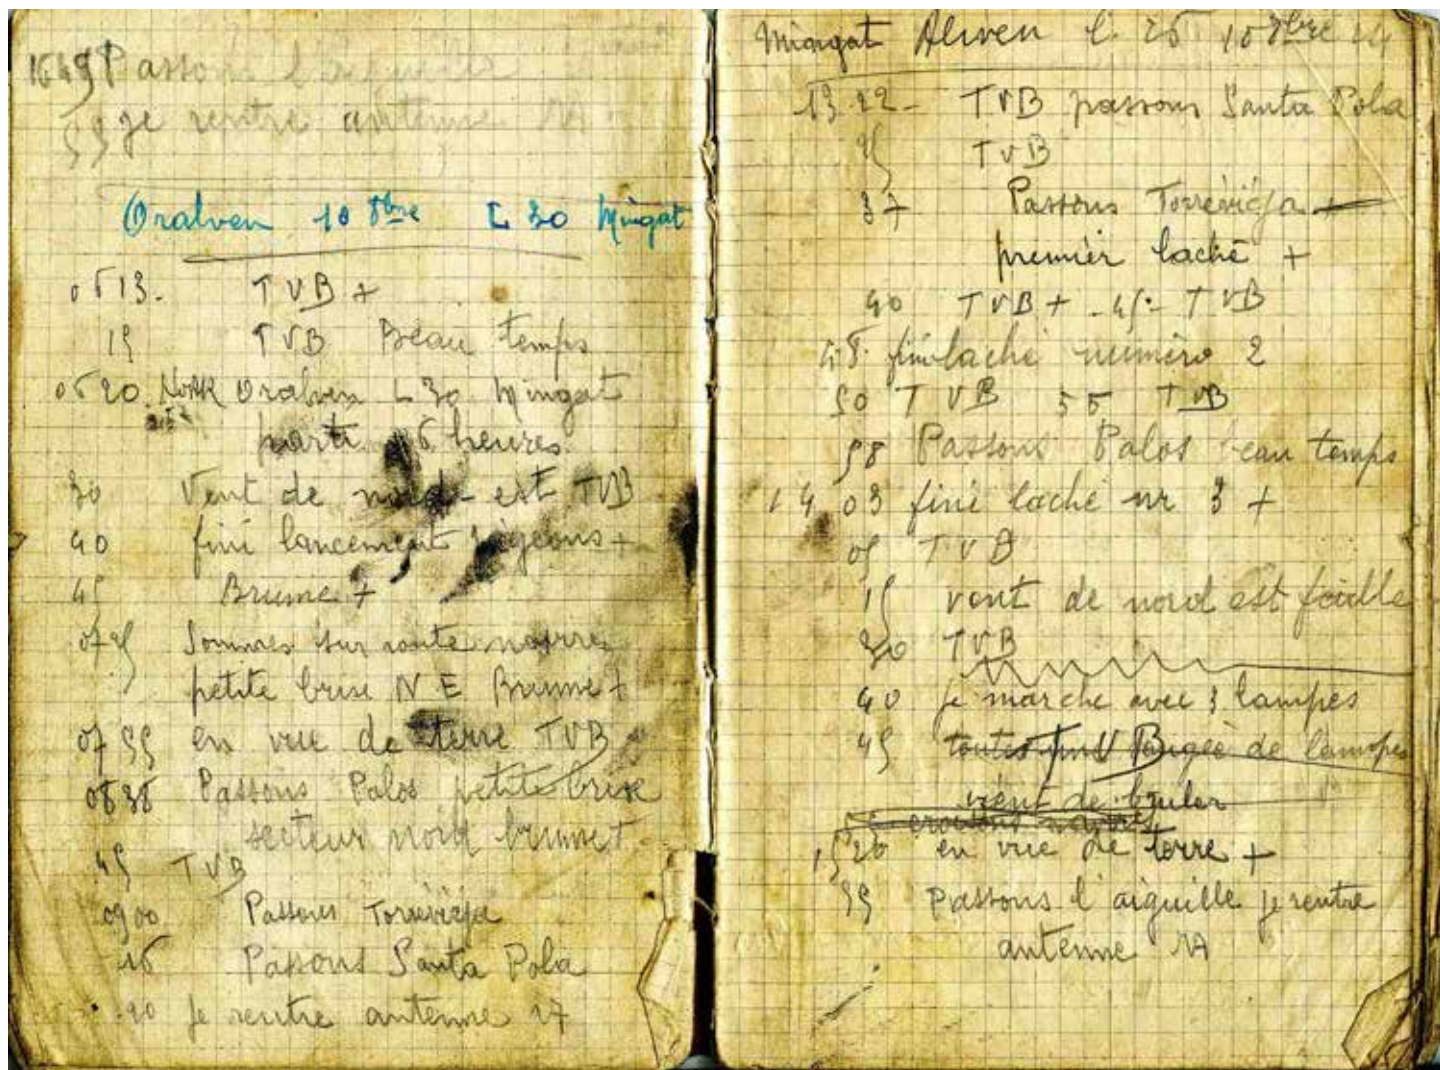 1649 Passons l'aiguille
55 je rentre antenne
Oralven 10 8bre L 30 Mingat
0613. TVB +
15 TVB Beau temps
0620. Oralven L 30 Mingat
parti 06 heures
30 Vent de nord-est TVB
40 fini lancement pigeons +
45 Brume +
0725 Sommes sur route
petite brise N E Brume +
0755 en vue de terre TVB
0838 Passons Palos petite brise
secteur nord brume +
45 TVB
0900 Passons Torrevieja
16 Passons Santa Pola
20 Je rentre antenne
Mingat Aliven
13 22 - TVB passons Santa Pola
25 TVB
37 Passons Torrevieja
premier laché +
40 TVB + - 45 - TVB
48. fini laché numéro 2
50 TVB 55 TVB
58 Passons Palos beau temps
14 03 fini laché nr 3 +
05 TVB
15 vent de nord est faible
30 TVB
40 je marche avec 3 lampes
45 TVB de lampes
vient de bruler
15 20 en vue de terre +
55 Passons l'aiguille je rentre
antenne